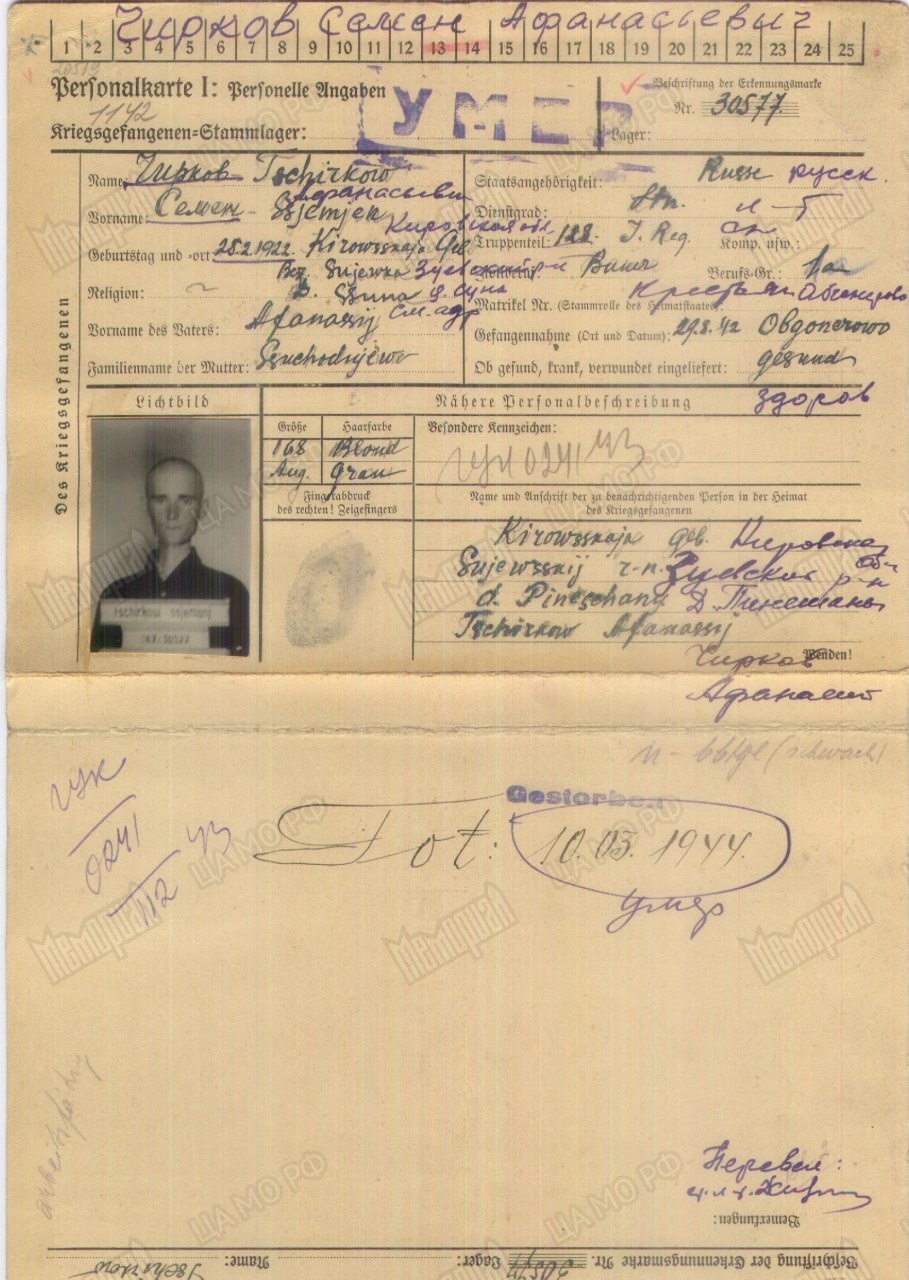 Чирков Семен Афанасьевич
1 2 3 4 5 6 7 8 9 10 11 12 13 14 15 16 17 18 19 20 21 22 23 24 25
Personalkarte I: Personelle Angaben
Beschriftung der Erkennungsmarke
1142
Nr. 30577.
Kriegsgefangenen=Stammlager:
УМЕР
Lager:
Des Kriegsgefangenen
Name: Чирков Tschirkow
Афанасьеви
Vorname: Семен Ssjemjen
Кировская обл
Geburtstag und -ort 28.2.1922. Kirowsskaja Geb
Bez. Sujewka Зуевский р-н
Religion: D. Ssuna д. Суна
См. адр
Vorname des Vaters: Afanassij
Familienname der Mutter: Ssuchodojewo
Staatsangehörigkeit: Russe русск.
Dienstgrad: Л-т
Truppenteil: 128. J. Reg. Komp. usw.:
Bauer Berufs-Gr.: 1a
Крестьян Абганерово
Matrikel Nr. (Stammrolle des Heimatstaates)
Gefangennahme (Ort und Datum): 29.8.42 Obganerowo
Ob gesund, krank, verwundet eingeliefert: gesund
здоров
Lichtbild
Nähere Personalbeschreibung
Größe Haarfarbe Besondere Kennzeichen:
168 Blond
Aug. Grau
0241
Fingerabdruck
des rechten! Zeigefingers
Name und Anschrift der zu benachrichtigenden Person in der Heimat
des Kriegsgefangenen
Kirowsskaja Geb. Кировская
обл
Sujewsskij r-n. Зуевский р-н
d. Pineschany Д. Пинешаны
Tschirkow Afanassij
Чирков
Wenden!
Афанасий
Tschirkow Ssjemjen
367-30577
(schwach)
Gestorben
Tot: 10.03.1944.
умер
0241
112
arbeitsfähig
Перевел:
Bemerkungen:
Beschriftung der Erkennungsmarke Nr. 30577 Lager: Name: Tschirkow
Мемориал
ЦАМО РФ